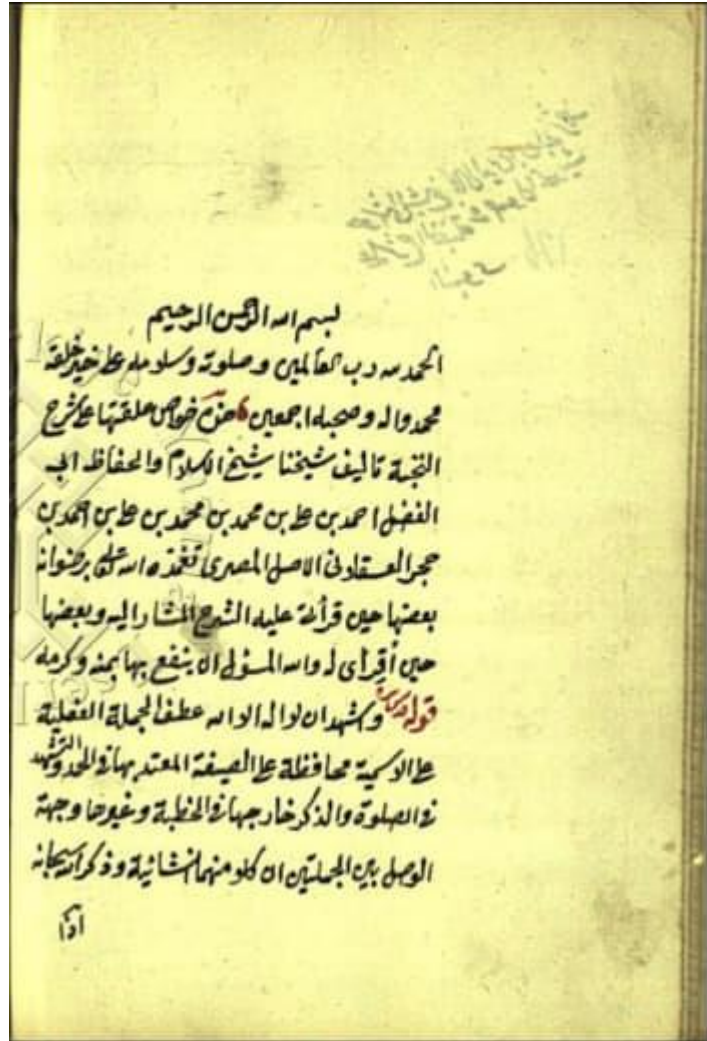 بسم الله الرحمن الرحيم
الحمد لله رب العالمين وصلوته وسلامه على خير خلقه
محمد واله وصحبه اجمعين خواص علقتها على شرح
النخبة تاليف شيخنا شيخ الاسلام والحفاظ ابى
الفضل احمد بن على بن محمد بن محمد بن على بن احمد بن
حجر العسقلانى الاصل المصرى تغمده الله برضوانه
بعضها حين قرأته عليه الشرح المشار اليه وبعضها
حين أقراى له والله المسؤل ان ينفع بها بمنه وكرمه
قوله واشهد ان لا اله الا الله عطف الجملة الفعلية
على الاسمية محافظة على الصيغة المعتد بها فى الحمد والتشهد
فى الصلوة والذكر خارجها فى الخطبة وغيرها وجهة
الوصل بين الجملتين ان كلا منهما انشائية وذكر انه سبحانه
اذا